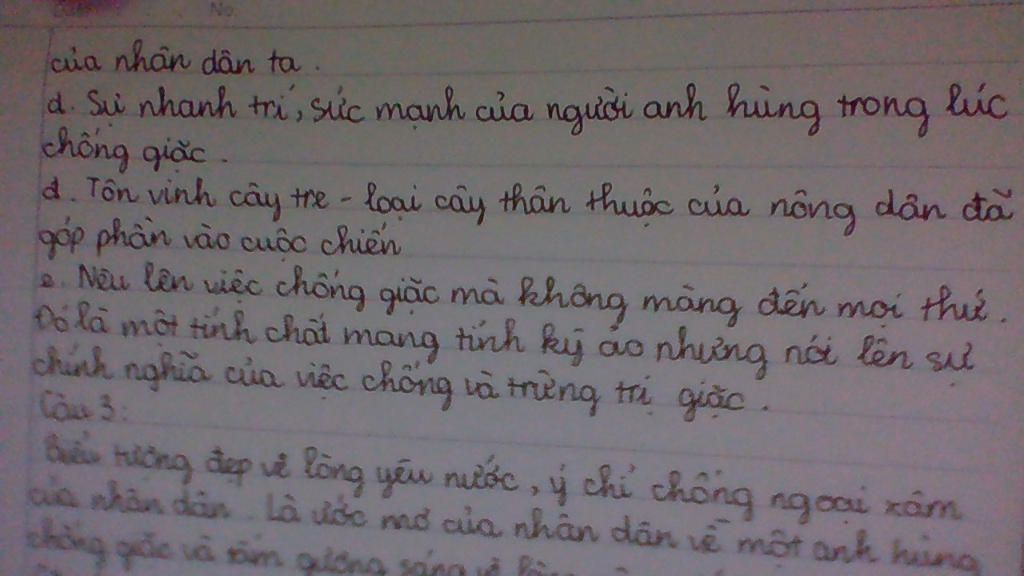 No.
của nhân dân ta.
d. Sự nhanh trí, sức mạnh của người anh hùng trong lúc
chống giặc.
đ. Tôn vinh cây tre - loại cây thân thuộc của nông dân đã
góp phần vào cuộc chiến
e. Nêu lên việc chống giặc mà không màng đến mọi thứ.
Đó là một tính chất mang tính kỳ ảo nhưng nói lên sự
chính nghĩa của việc chống và trừng trị giặc.
Câu 3:
Biểu tượng đẹp về lòng yêu nước, ý chí chống ngoại xâm
của nhân dân. Là ước mơ của nhân dân về một anh hùng
chống giặc và tấm gương sáng về